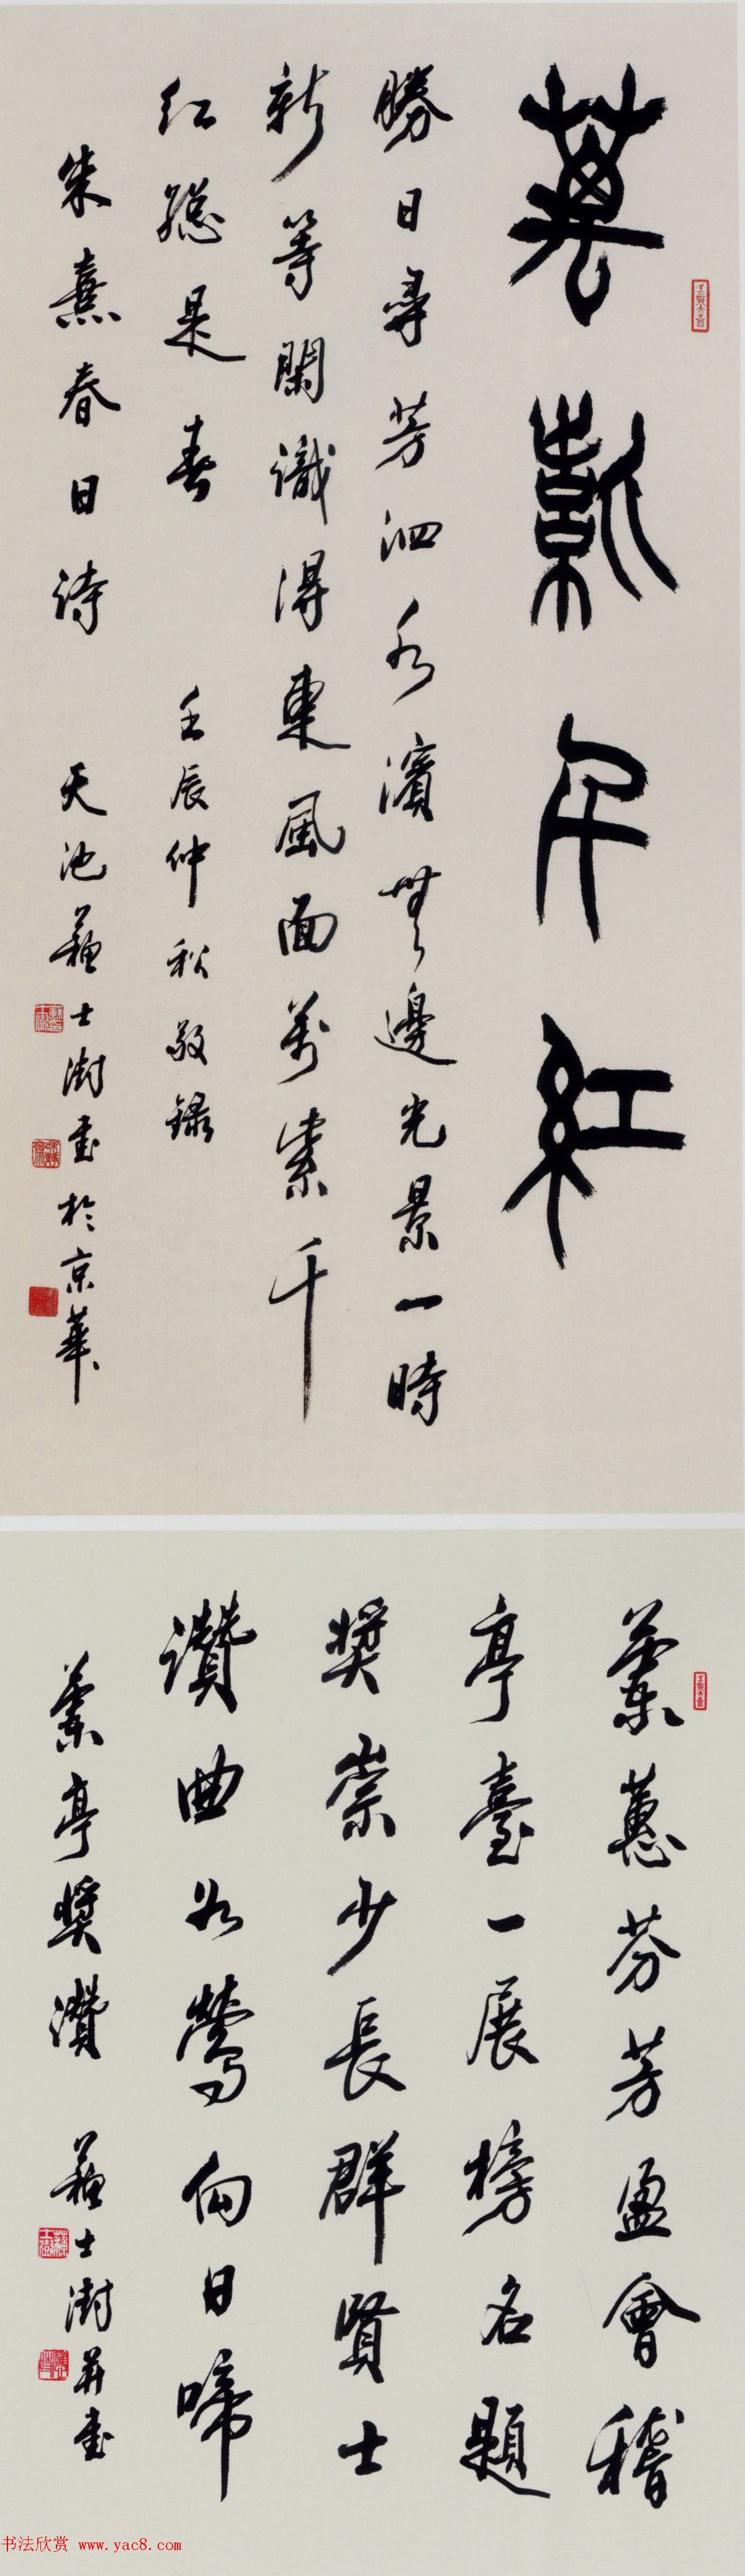 萬紫千紅
勝日尋芳泗水濱無邊光景一時
新等閑識得東風面萬紫千
紅總是春 壬辰仲秋敬録
朱熹春日詩 天池蘇士澍書於京華
蘭蕙芬芳盈會稽
亭臺一展榜名題
奬崇少長群賢士
讚曲如鶯向日啼
蘭亭奬讚 蘇士澍并書
书法欣赏 www.yac8.com